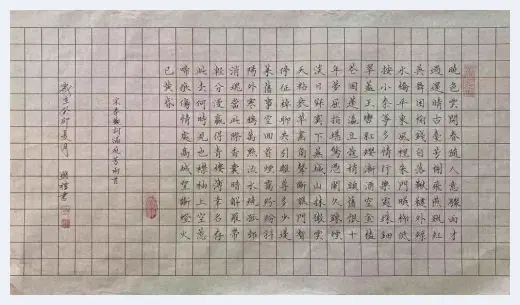 晚色雲開春随人意驟雨才
過還晴古臺芳榭飛燕蹴紅
英舞困榆錢自落鞦韆外緑
水橋平東風裡朱門映柳低
按小秦箏多情行樂處珠鈿
翠蓋玉轡紅纓漸酒空金榼
花困蓬瀛豆蔻梢頭舊恨十
年夢屈指堪驚憑闌久疎煙
淡日寂寞下蕪城山抹微雲
天粘衰草畫角聲斷譙門暫
停征棹聊共引離尊多少蓬
萊舊事空回首煙靄紛紛斜
陽外寒鴉萬點流水繞孤邨
消魂當此際香囊暗解羅帶
輕分漫贏得青樓薄幸名存
此去何時見也襟袖上空惹
啼痕傷情處高城望斷燈火
已黄昏
宋秦觀詞滿庭芳兩首
歲在癸卯夏月
書